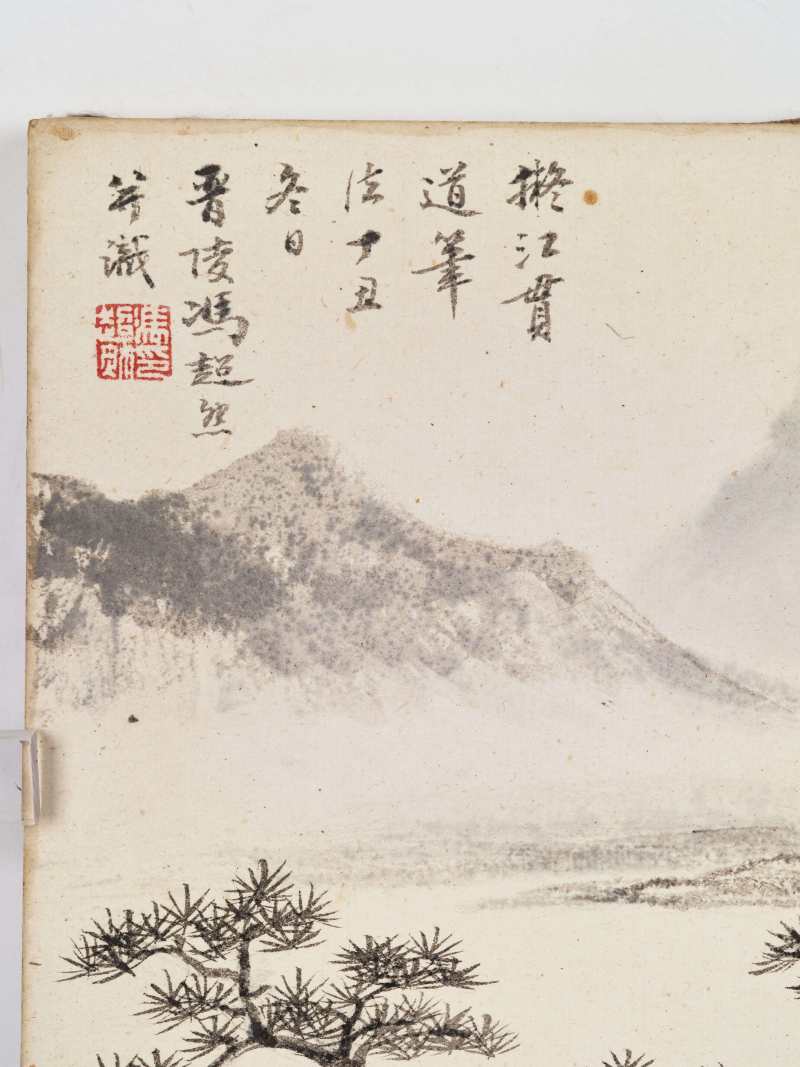 擬江貫
道筆
法丁丑
冬日
晉陵馮超然
并識
馮印
超然